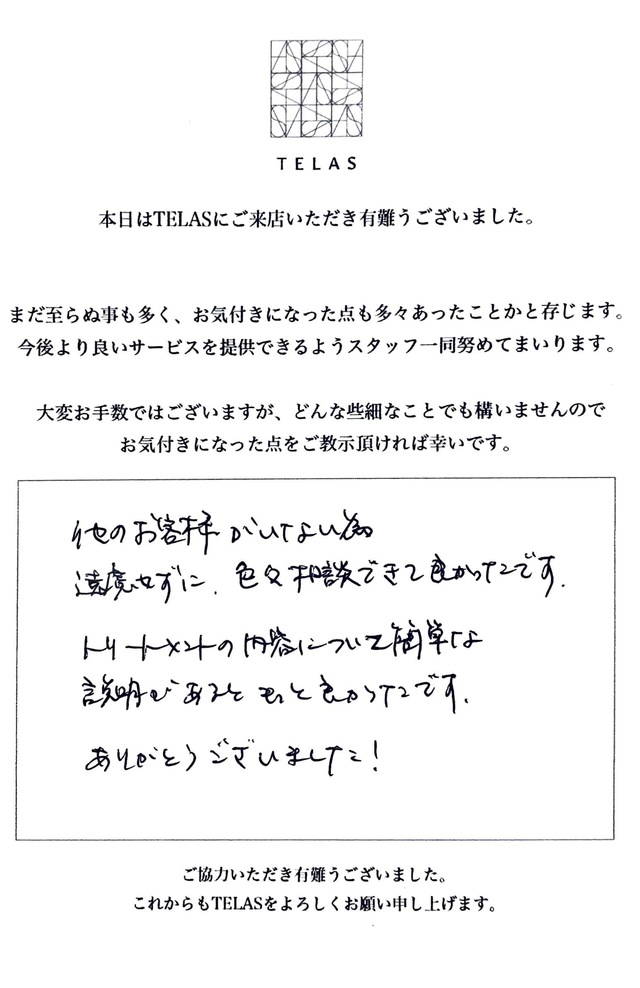 TELAS
本日はTELASにご来店いただき有難うございました。
まだ至らぬ事も多く、お気付きになった点も多々あったことかと存じます。
今後より良いサービスを提供できるようスタッフ一同努めてまいります。
大変お手数ではございますが、どんな些細なことでも構いませんので
お気付きになった点をご教示頂ければ幸いです。
他のお客様がいない為
遠慮せずに、色々相談できて良かったです。
トリートメントの内容について簡単な
説明があるともっと良かったです。
ありがとうございました！
ご協力いただき有難うございました。
これからもTELASをよろしくお願い申し上げます。